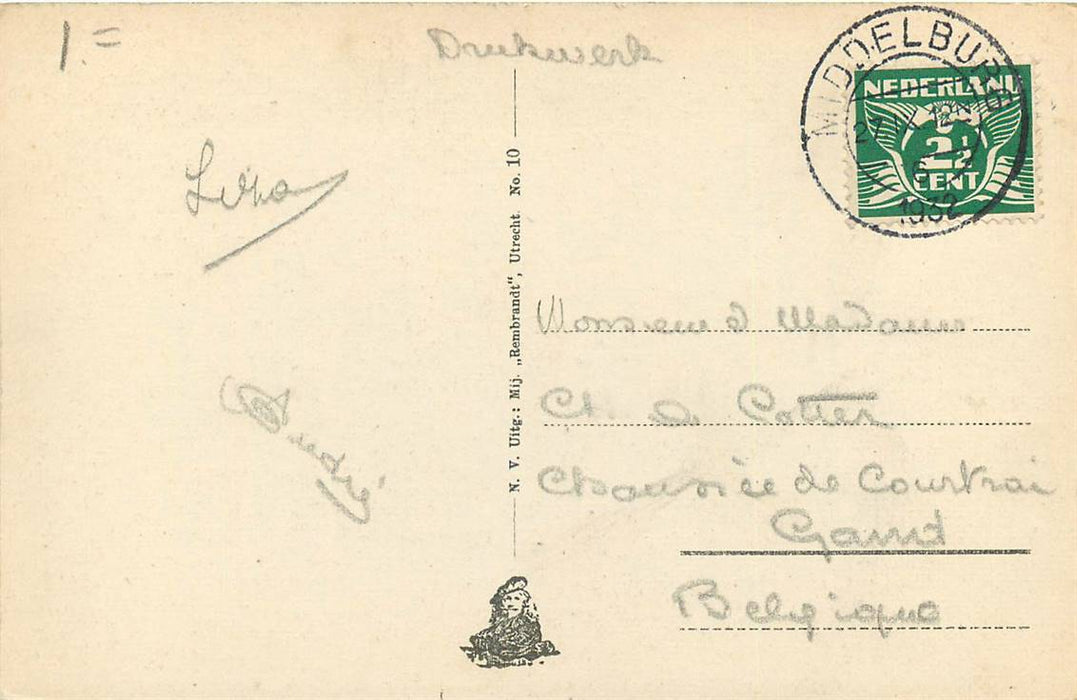 1.=
Drukwerk
MIDDELBURG
1932
NEDERLAND
2½
CENT
André
N. V. Uitg.: Mij. „Rembrandt", Utrecht. No. 10
Monsieur & Madame
Ch. de Cotter
Chaussée de Courtrai
Gand
Belgique